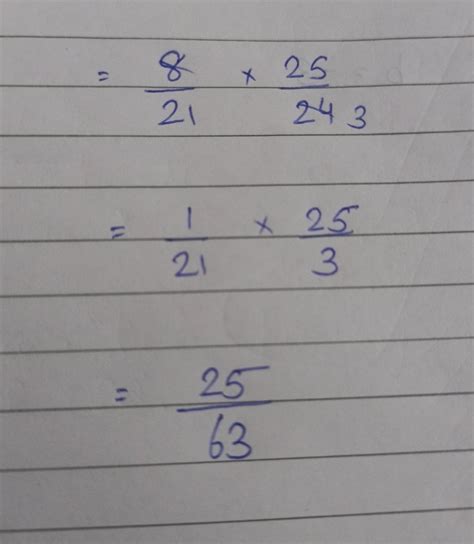 = 8/21 × 25/24 3
= 1/21 × 25/3
= 25/63